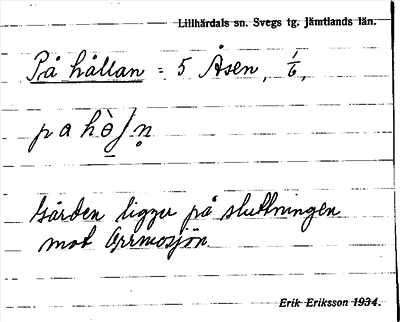 Lillhärdals sn. Svegs tg. Jämtlands län.
På hållan = 5 Åsen, 1/6,
Gården ligger på sluttningen
mot Orrmosjön
Erik Eriksson 1934.